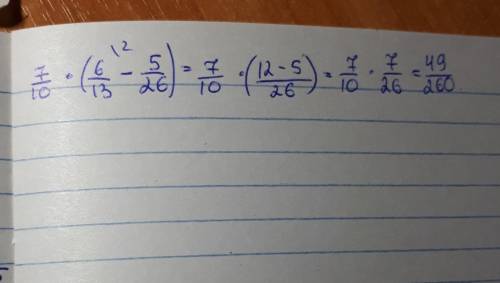 7/10 · (6/13 \2 - 5/26) = 7/10 · (12-5/26) = 7/10 · 7/26 = 49/260